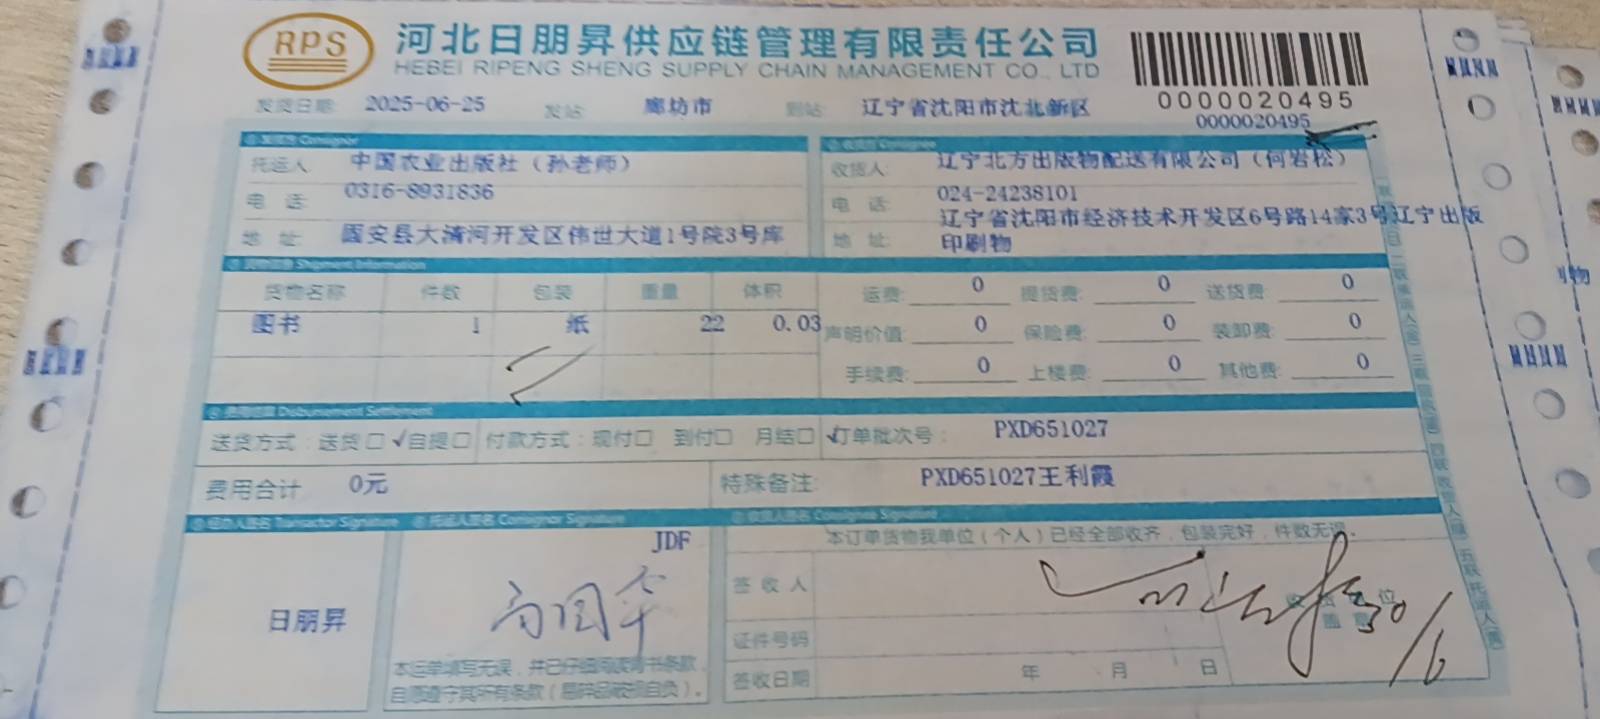 RPS
河北日朋昇供应链管理有限责任公司
HEBEI RIPENG SHENG SUPPLY CHAIN MANAGEMENT CO., LTD
0000020495
0000020495
发货日期: 2025-06-25 发站: 廊坊市 到站: 辽宁省沈阳市沈北新区
Consignor
Consignee
托运人 中国农业出版社（孙老师） 收货人: 辽宁北方出版物配送有限公司（何岩松）
电 话: 0316-8931836 电 话: 024-24238101
地 址: 固安县大清河开发区伟世大道1号院3号库 地 址: 辽宁省沈阳市经济技术开发区6号路14家3号辽宁出版
印刷物
Shipment Information
货物名称 件数 包装 重量 体积 运费: 0 提货费: 0 送货费: 0
图书 1 纸 22 0.03 声明价值: 0 保险费: 0 装卸费: 0
手续费: 0 上楼费: 0 其他费: 0
Disbursement Settlement
送货方式：送货□ √自提□ 付款方式：现付□ 到付□ 月结□ √订单批次号： PXD651027
费用合计 0元 特殊备注: PXD651027王利霞
Transactor Signature Consignor Signature Consignee Signature
JDF
本订单货物我单位（个人）已经全部收齐，包装完好，件数无误。
日朋昇
签收人
证件号码
签收日期 年 月 日
本运单填写无误，并已仔细阅读背书条款，
自愿遵守其所有条款（易碎品破损自负）。